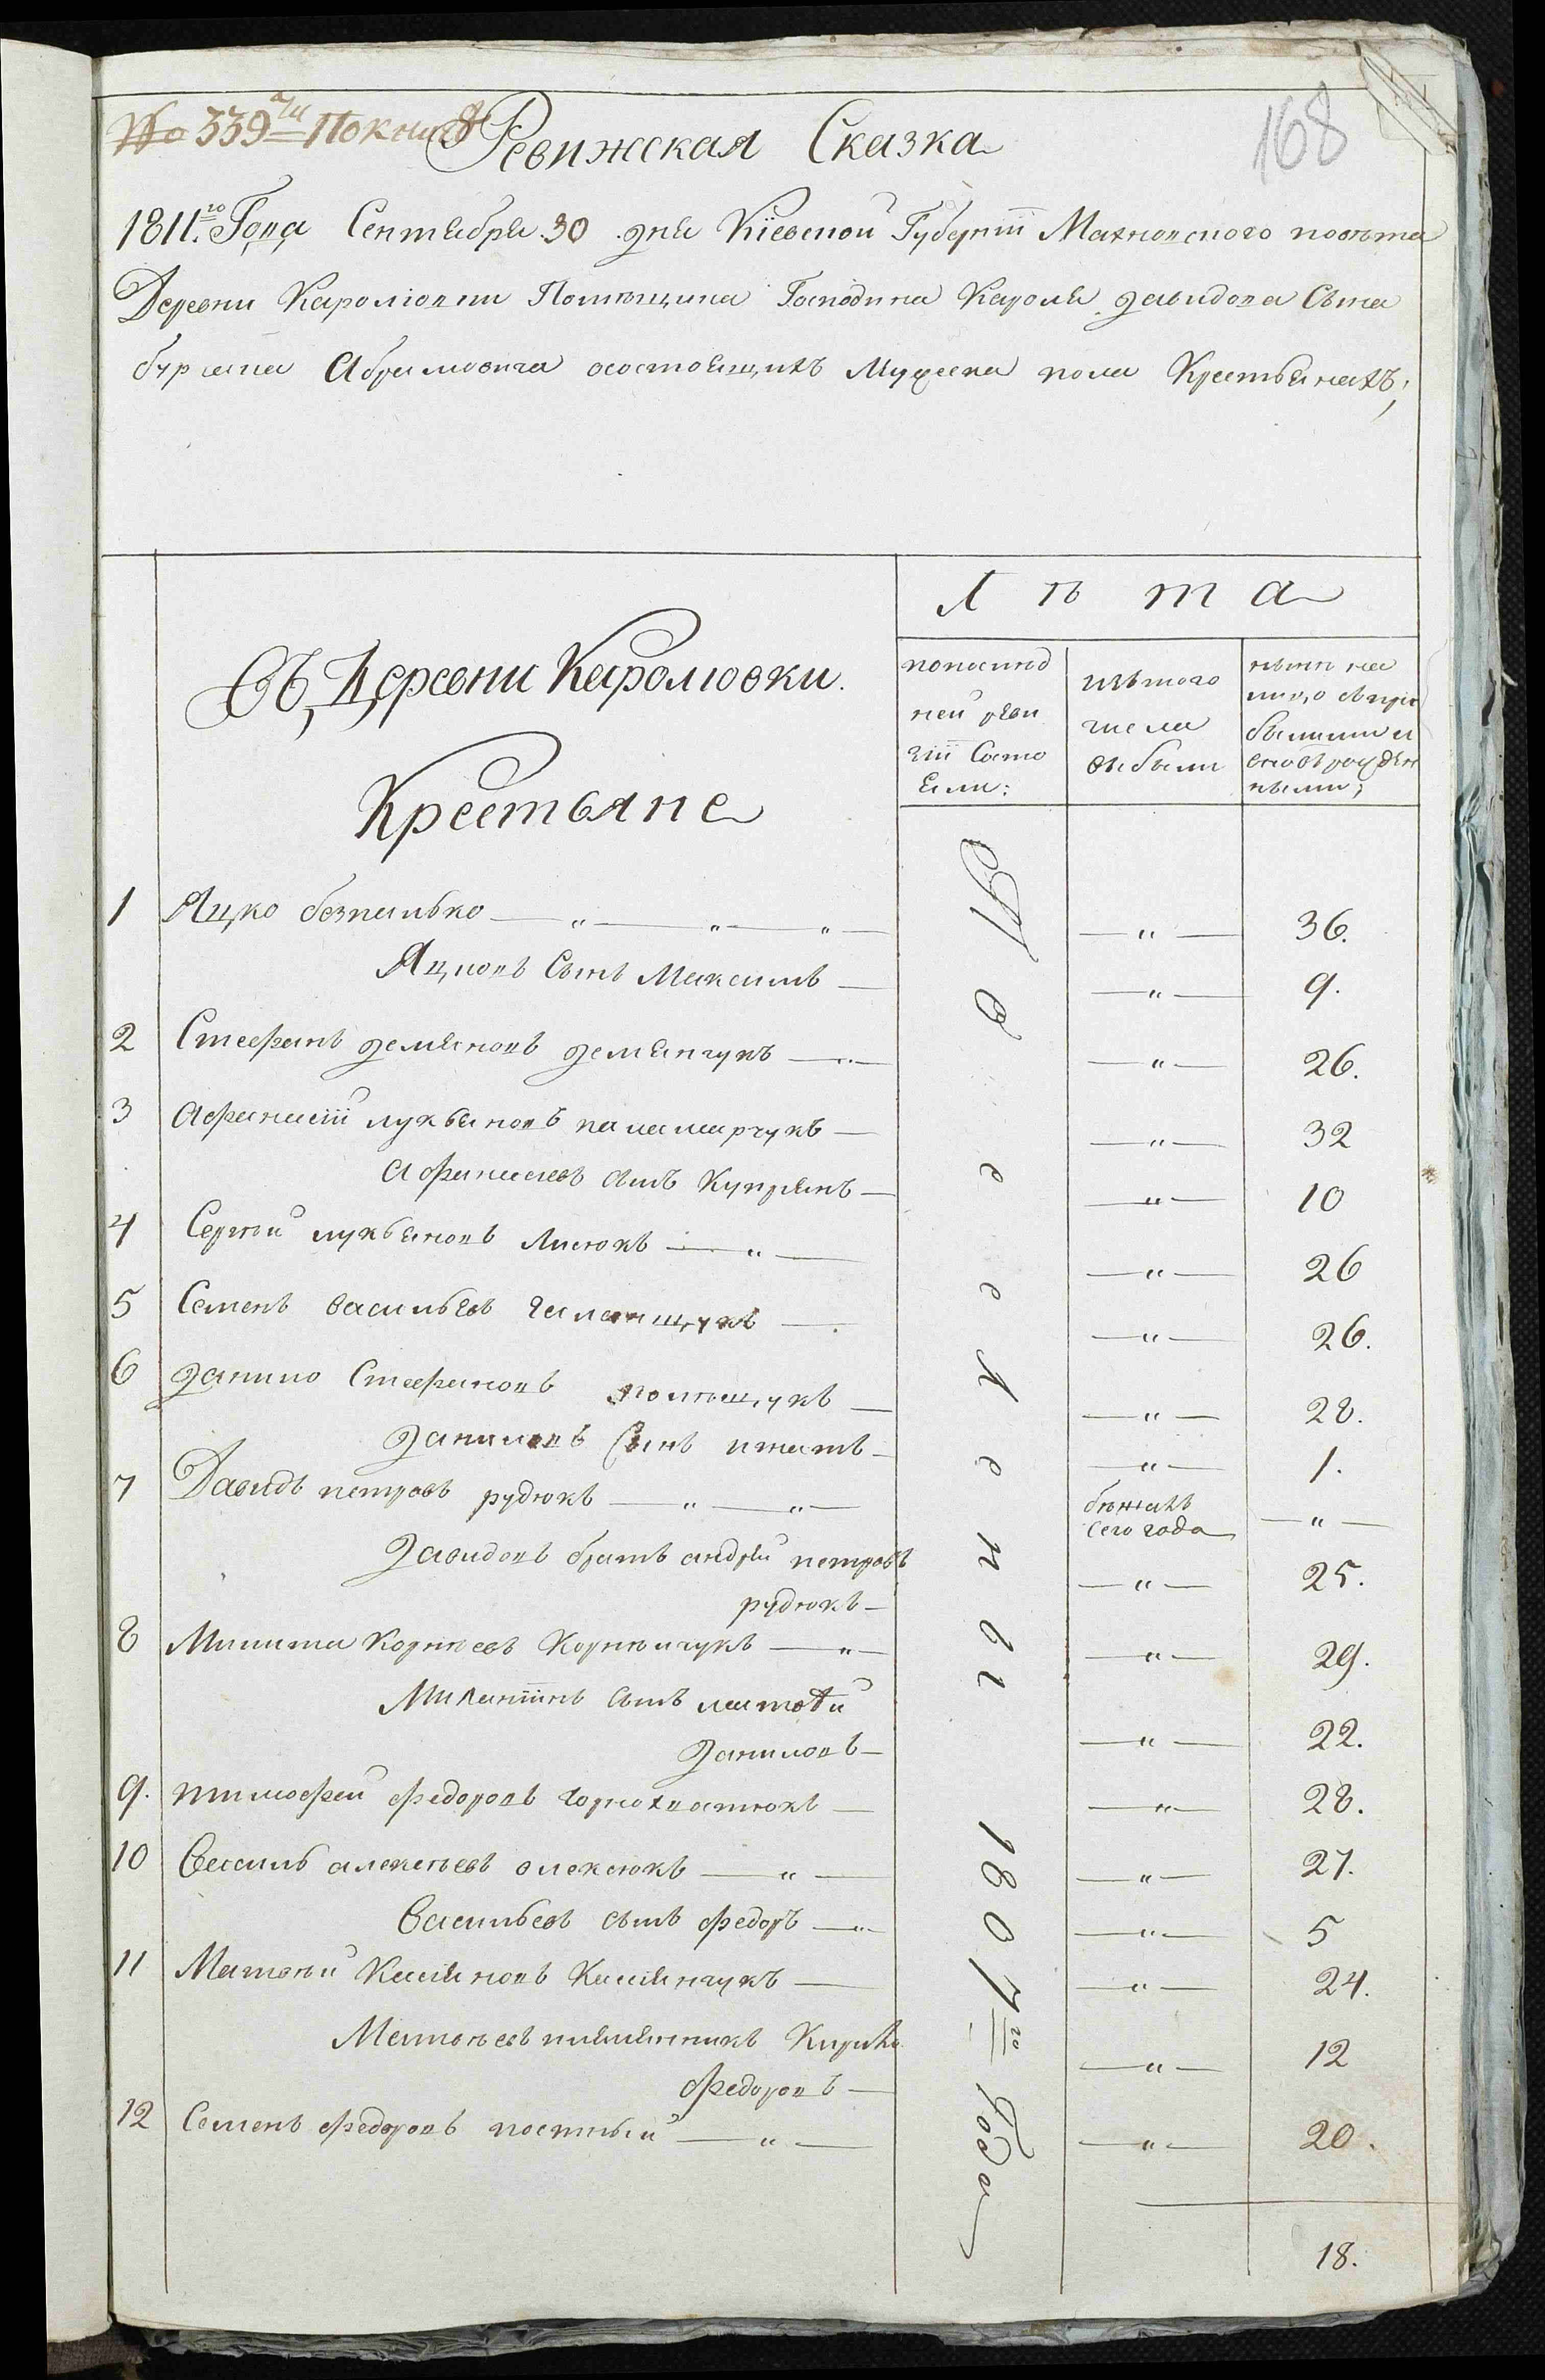 № 339й По книгѣ
168
Ревижская Сказка
1811го Года Сентября 30 дня Кіевской Губерніи Махновского повѣта
Деревни Каролювки Помѣщика Господина Кароля давидова Сына
Абрамовича осостоящихъ Мужеска пола Крестьянахъ;
Лѣта
Въ Деревни Каролювки.
Крестьяне
попослѣд
ней реви
зіи Состо
яли:
изътого
числа
выбыли
нынѣ на
лицо съпри
былыми и
вновьрожден
ными;
Новоселены 1807го Года
1 Яцко безпалько — " — " — " — — " — 36.
Яцковъ Сынъ Максимъ — — " — 9.
2 Стефанъ демяновъ демянчукъ — — " — 26.
3 Афанасій лукьяновъ паламарчукъ — — " — 32
Афанасіевъ сынъ Купріянъ — — " — 10
4 Сергѣй лукьяновъ Лисюкъ — " — — " — 26
5 Семенъ васильевъ — — " — 26.
6 данило Стефановъ полѣщукъ — — " — 28.
даниловъ Сынъ игнатъ — — " — 1.
7 Давидъ петровъ рудюкъ — " — " — бѣжалъ — " —
сего года
давидовъ братъ андрей петровъ — " — 25.
рудюкъ —
8 Микита Корнѣевъ Корнѣйчукъ — " — — " — 29.
сынъ матвѣй
даниловъ — — " — 22.
9. тимофей федоровъ — — " — 28.
10 Василь алексѣевъ олексюкъ — " — — " — 27.
Васильевъ сынъ федоръ — " — — " — 5
11 Матвѣй Касіяновъ Касіянчукъ — — " — 24.
Матвѣевъ племянникъ Кирило
федоровъ — — " — 12
12 Семенъ федоровъ постный — " — — " — 20.
18.